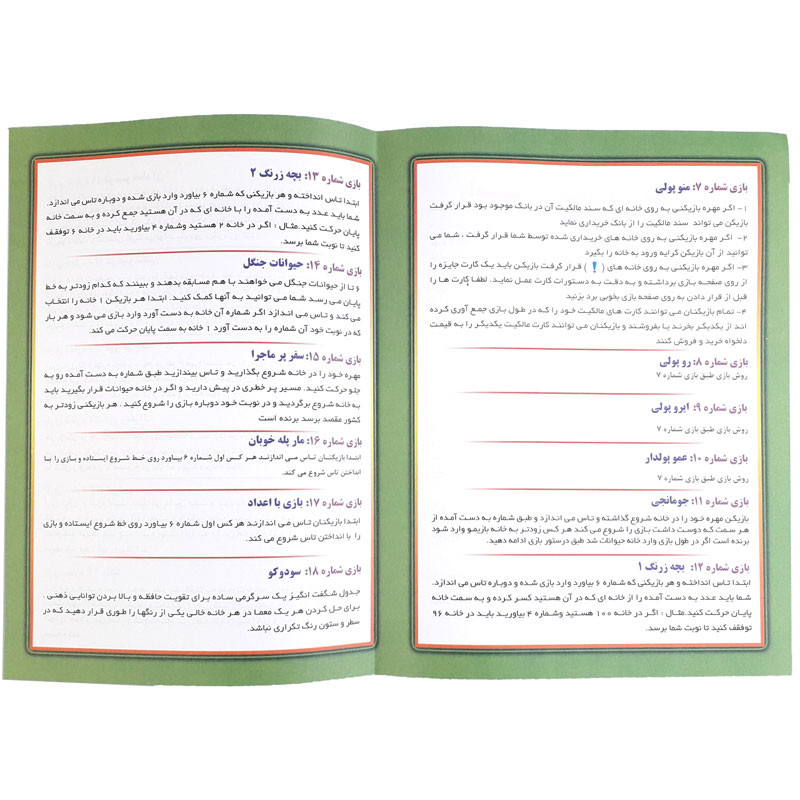 بازی شماره ۷: منو پولی
۱- اگر مهره بازیکنی به روی خانه ای که سند مالکیت آن در بانک موجود بود قرار گرفت
بازیکن می تواند سند مالکیت را از بانک خریداری نماید
۲- اگر مهره بازیکنی به روی خانه های خریداری شده توسط شما قرار گرفت ، شما می
توانید از آن بازیکن کرایه ورود به خانه را بگیرد
۳- اگر مهره بازیکنی به روی خانه های ( ! ) قرار گرفت بازیکن باید یک کارت جایزه را
از روی صفحه بازی برداشته و به دقت به دستورات کارت عمل نماید. لطفا کارت ها را
قبل از قرار دادن به روی صفحه بازی بخوبی برد بزنید
۴- تمام بازیکنان می توانند کارت های مالکیت خود را که در طول بازی جمع آوری کرده
اند از یکدیگر بخرند یا بفروشند و بازیکنان می توانند کارت مالکیت یکدیگر را به قیمت
دلخواه خرید و فروش کنند
بازی شماره ۸: رو پولی
روش بازی طبق بازی شماره ۷
بازی شماره ۹: ایرو پولی
روش بازی طبق بازی شماره ۷
بازی شماره ۱۰: عمو پولدار
روش بازی طبق بازی شماره ۷
بازی شماره ۱۱: جومانجی
بازیکن مهره خود را در خانه شروع گذاشته و تاس می اندازد و طبق شماره به دست آمده از
هر سمت که دوست داشت بازی را شروع می کند هر کس زودتر به خانه بازیمو وارد شود
برنده است اگر در طول بازی وارد خانه حیوانات شد طبق درستور بازی ادامه دهید.
بازی شماره ۱۲: بچه زرنگ ۱
ابتدا تاس انداخته و هر بازیکنی که شماره ۶ بیاورد وارد بازی شده و دوباره تاس می اندازد.
شما باید عدد به دست آمده را از خانه ای که در آن هستید کسر کرده و به سمت خانه
پایان حرکت کنید.مثال : اگر در خانه ۱۰۰ هستید وشماره ۴ بیاورید باید در خانه ۹۶
توفقف کنید تا نوبت شما برسد.
بازی شماره ۱۳: بچه زرنگ ۲
ابتدا تاس انداخته و هر بازیکنی که شماره ۶ بیاورد وارد بازی شده و دوباره تاس می اندازد.
شما باید عدد به دست آمده را با خانه ای که در آن هستید جمع کرده و به سمت خانه
پایان حرکت کنید.مثال : اگر در خانه ۲ هستید وشماره ۴ بیاورید باید در خانه ۶ توفقف
کنید تا نوبت شما برسد.
بازی شماره ۱۴: حیوانات جنگل
۶ تا از حیوانات جنگل می خواهند با هم مسابقه بدهند و ببینند که کدام زودتر به خط
پایان می رسد شما می توانید به آنها کمک کنید. ابتدا هر بازیکن ۱ خانه را انتخاب
می کند و تاس می اندازد اگر شماره آن خانه به دست آورد وارد بازی می شود و هر بار
که در نوبت خود آن شماره را به دست آورد ۱ خانه به سمت پایان حرکت می کند.
بازی شماره ۱۵: سفر پر ماجرا
مهره خود را در خانه شروع بگذارید و تاس بیندازید طبق شماره به دست آمده رو به
جلو حرکت کنید. مسیر پر خطری در پیش دارید و اگر در خانه حیوانات قرار بگیرید باید
به خانه شروع برگردید و در نوبت خود دوباره بازی را شروع کنید . هر بازیکنی زودتر به
کشور مقصد برسد برنده است
بازی شماره ۱۶: مار پله خوبان
ابتدا بازیکنان تاس می اندازند هر کس اول شماره ۶ بیاورد روی خط شروع ایستاده و بازی را با
انداختن تاس شروع می کند.
بازی شماره ۱۷: بازی با اعداد
ابتدا بازیکنان تاس می اندازند هر کس اول شماره ۶ بیاورد روی خط شروع ایستاده و بازی
را با انداختن تاس شروع می کند.
بازی شماره ۱۸: سودوکو
جدول شگفت انگیز یک سرگرمی ساده برای تقویت حافظه و بالا بردن توانایی ذهنی .
برای حل کردن هر یک معما در هر خانه خالی یکی از رنگها را طوری قرار دهید که در
سطر و ستون رنگ تکراری نباشد.